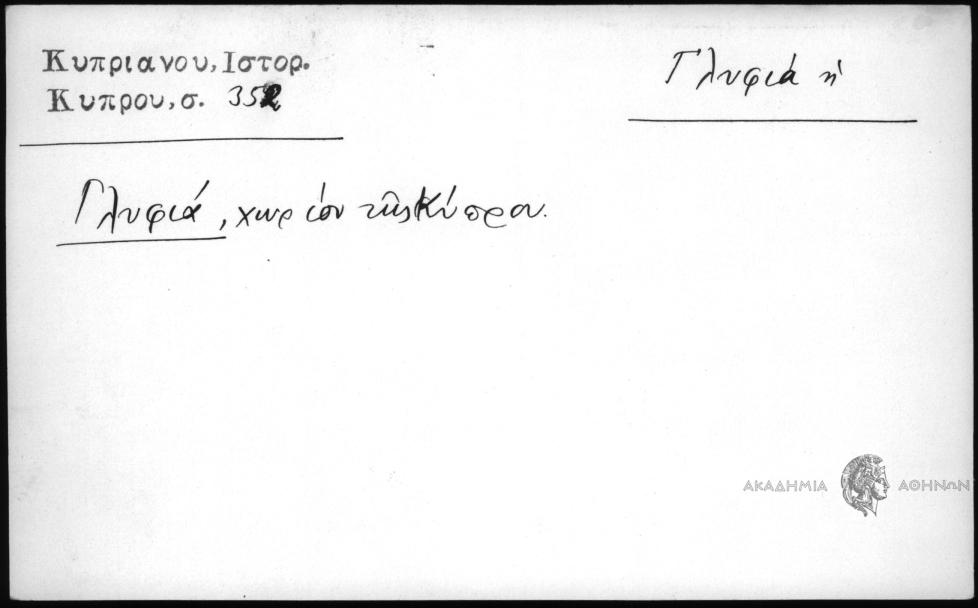 Κυπριανου, Ιστορ.
Κυπρου, σ. 352
Γλυφιά ἡ
Γλυφιά, χωρίον τῆς Κύπρου.
ΑΚΑΔΗΜΙΑ ΑΘΗΝΩΝ